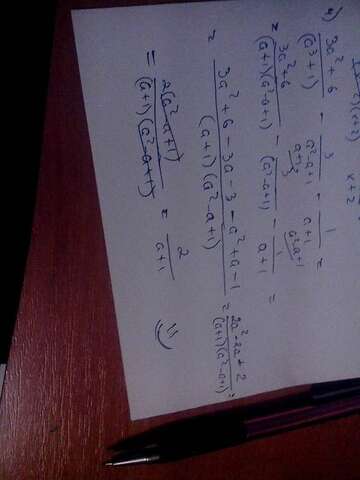 x+2
4) \frac{3a²+6}{(a³+1)} - \frac{3}{a²-a+1} - \frac{1}{a+1} =
= \frac{3a²+6}{(a+1)(a²-a+1)} - \frac{3}{(a²-a+1)} - \frac{1}{a+1} =
= \frac{3a²+6-3a-3-a²+a-1}{(a+1)(a²-a+1)} = \frac{2a²-2a+2}{(a+1)(a²-a+1)} =
= \frac{2(a²-a+1)}{(a+1)(a²-a+1)} = \frac{2}{a+1}